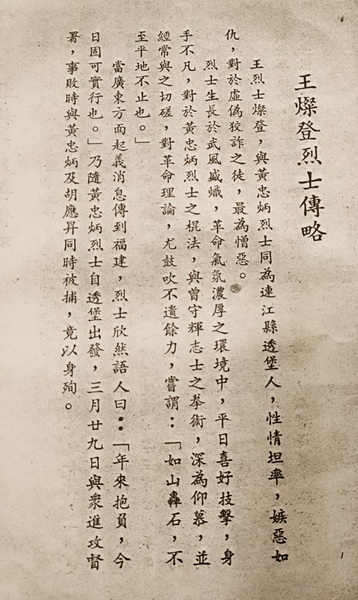 王燦登烈士傳略
王烈士燦登，與黃忠炳烈士同為連江縣透堡人，性情坦率，嫉惡如
仇，對於虛偽狡詐之徒，最為憎惡。
烈士生長於武風盛熾，革命氣氛濃厚之環境中，平日喜好技擊，身
手不凡，對於黃忠炳烈士之棍法，與曾守輝志士之拳術，深為仰慕，並
經常與之切磋，對革命理論，尤鼓吹不遺餘力，嘗謂：「如山轟石，不
至平地不止也。」
當廣東方面起義消息傳到福建，烈士欣然語人曰：「年來抱負，今
日固可實行也。」乃隨黃忠炳烈士自透堡出發，三月廿九日與眾進攻督
署，事敗時與黃忠炳及胡應昇同時被捕，竟以身殉。